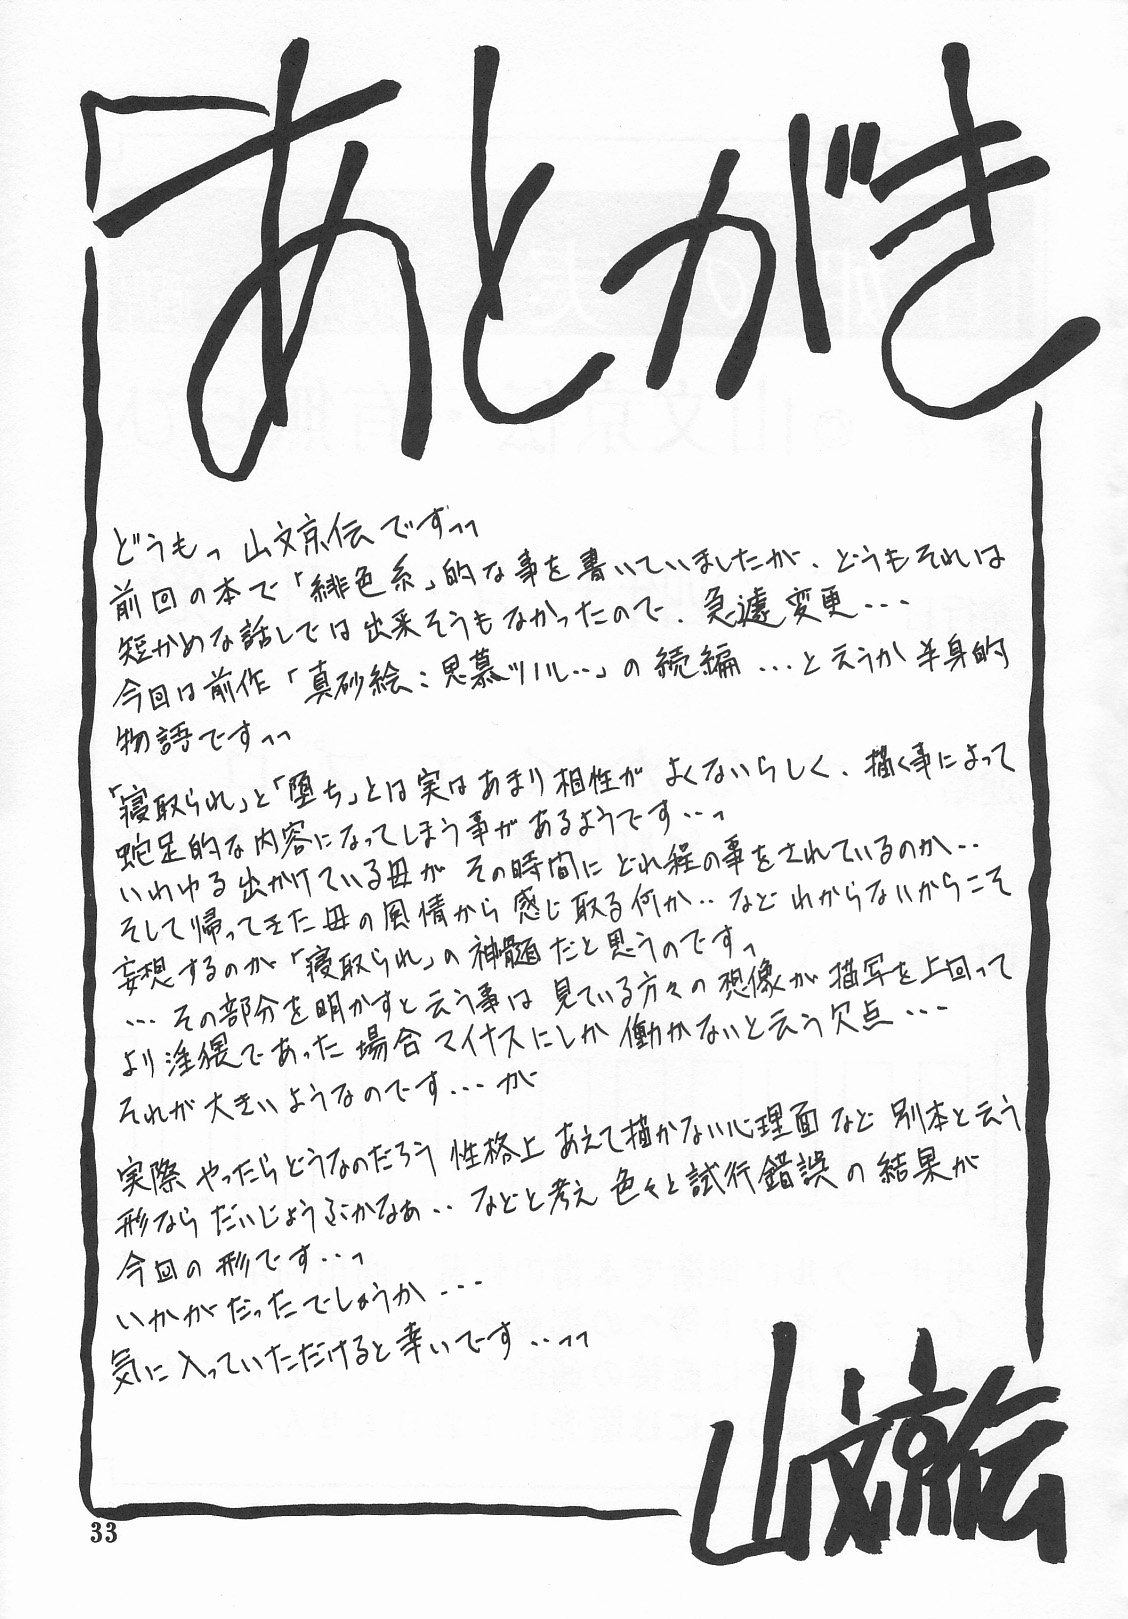 あとがき
どうもっ山文京伝ですっっ
前回の本で「緋色系」的な事を書いていましたが、どうもそれは
短かめな話しでは出来そうもなかったので、急遽変更・・・
今回は前作「真砂絵：思慕ツノル…」の続編・・・と云うか半身的
物語ですっっ
「寝取られ」と「堕ち」とは実はあまり相性がよくないらしく、描く事によって
蛇足的な内容になってしまう事があるようです・・っ
いわゆる出かけている母がその時間にどれ程の事をされているのか・・
そして帰ってきた母の風情から感じ取る何か・・などわからないからこそ
妄想するのが「寝取られ」の神髄だと思うのですっ
・・・その部分を明かすと云う事は見ている方々の想像が描写を上回って
より淫猥であった場合マイナスにしか働かないと云う欠点・・・
それが大きいようなのです・・・が
実際やったらどうなのだろう性格上あえて描かない心理面など別本と云う
形ならだいじょうぶかなぁ・・などと考え色々と試行錯誤の結果が
今回の形です・・っ
いかがだったでしょうか・・・
気に入っていただけると幸いです・・っっ
山文京伝
33